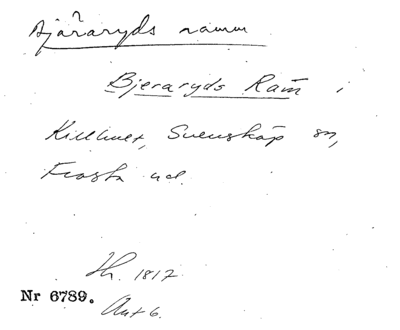 Bjäraryds ramm
Bjeraryds Ram̄ i
Killhult, Svensköp sn,
Frosta hd.
Hh. 1817
Nr 6789.
Akt 6.